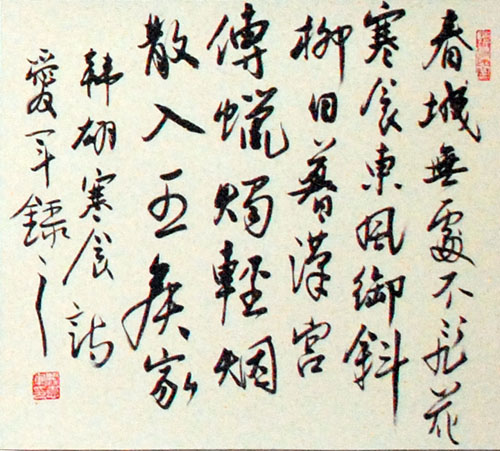 春城無處不飛花
寒食東風御斜
柳日暮漢宮
傳蠟燭輕烟
散入五侯家
韓翃寒食詩
愛军録之